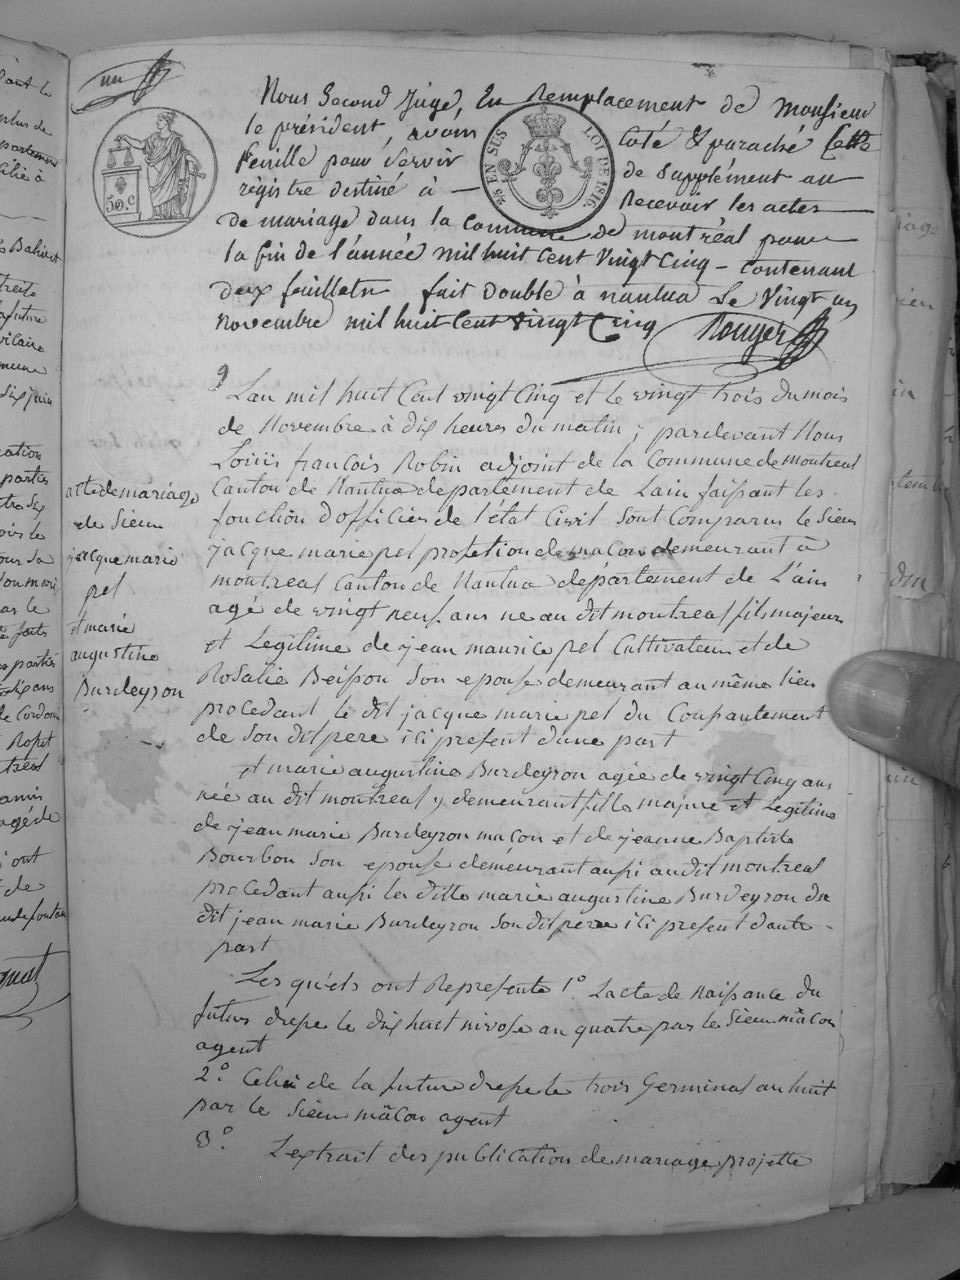 un
50 C
25 EN SUS LOI DE 1816.
Nous Second Juge, En Remplacement de Monsieur
le président, avons coté & paraphé Cette
feuille pour servir de Supplément au
régistre destiné à Recevoir les actes
de mariage dans la Commune de montréal pour
la fin de l'année mil huit Cent Vingt Cinq - Contenant
deux feuillets fait Double à nantua Le Vingt un
Novembre mil huit Cent vingt Cinq Rouyer
9
Lan mil huit Cent vingt Cinq et le vingt trois du mois
de Novembre à dix heures du matin ; pardevant Nous
Louis françois Robin adjoint de la Commune de montreal
Canton de Nantua departement de Lain faisant les
fonction d'officier de l'état Civil sont Comparus le Sieur
jacque marie pel profetion de macon demeurant à
montreal Canton de Nantua département de L'ain
agé de vingt neuf ans ne au dit montreal fils majeur
et Legitime de jean maurice pel Cultivateur et de
Rosalie Beisson son epouse demeurant au même lieu
procedant le dit jacque marie pel du Consantement
de son dit pere ici present d'une part
et marie augustine Burdeyron agée de vingt Cinq ans
née au dit montreal y demeurant fille majure et Legitime
de jean marie Burdeyron macon et de jeanne Baptiste
Bourbon son epouse demeurant aussi au dit montreal
procedant aussi la ditte marie augustine Burdeyron du
dit jean marie Burdeyron son dit pere ici present d'autre
part
Les quels ont Represente 1° Lacte de Naissance du
futur drepe le dix huit nivose an quatre par le Sieur mâcon
agent
2° Celui de la future drepe le trois Germinal an huit
par le Sieur mâcon agent
3° L'extrait des publication de mariage projette
acte de mariage
de Sieur
jacque marie
pel
et marie
augustine
Burdeyron